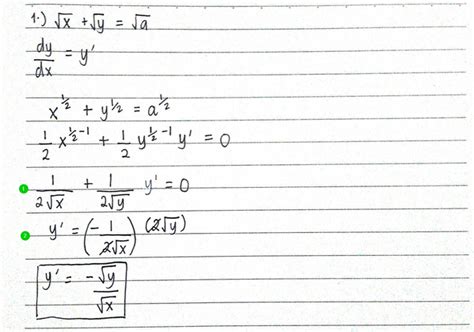 1.) √x + √y = √a
dy/dx = y'
x^½ + y^½ = a^½
1/2 x^(½-1) + 1/2 y^(½-1) y' = 0
1 1/(2√x) + 1/(2√y) y' = 0
2 y' = (-1/(2√x)) (2√y)
y' = -√y/√x